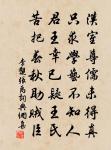 漢室尊儒未得真
只求學藝不知人
君王幸已疑王氏
苦把春秋助賊臣
李覯張禹詞典網集